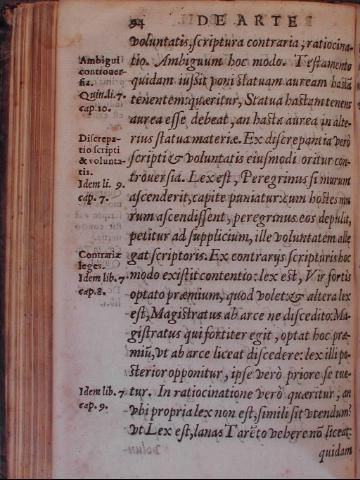 94 DE ARTE
voluntatis, scriptura contraria, ratiocina-
tio. Ambiguum hoc modo. Testamento
quidam iussit poni statuam auream hastā
tenentem: quæritur, Statua hastam tenens
aurea esse debeat, an hasta aurea in alte-
rius statua materiæ. Ex discrepantia verò
scripti & voluntatis eiusmodi oritur con-
trouersia. Lex est, Peregrinus si murum
ascenderit, capite puniatur: cum hostes mu
rum ascendissent, peregrinus eos depulit,
petitur ad supplicium, ille voluntatem alle
gat scriptoris. Ex contrarys scripturis hoc
modo existit contentio: lex est, Vir fortis
optato præmium, quod volet: & altera lex
est, Magistratus ab arce ne discedito: Ma-
gistratus qui fortiter egit, optat hoc præ-
miū, vt ab arce liceat discedere: lex illi po-
sterior opponitur, ipse verò priore se tue-
tur. In ratiocinatione verò quæritur, an
vbi propria lex non est, simili sit vtendum?
vt Lex est, lanas Tarēto vehere nō liceat:
quidam
Ambigui
controuer-
sia.
Quin.li.7.
cap.10.
Discrepa-
tio scripti
& volunta-
tis.
Idem li. 9.
cap. 7.
Contrariæ
leges.
Idem lib.7
cap.8.
Idem lib. 7.
cap. 9.